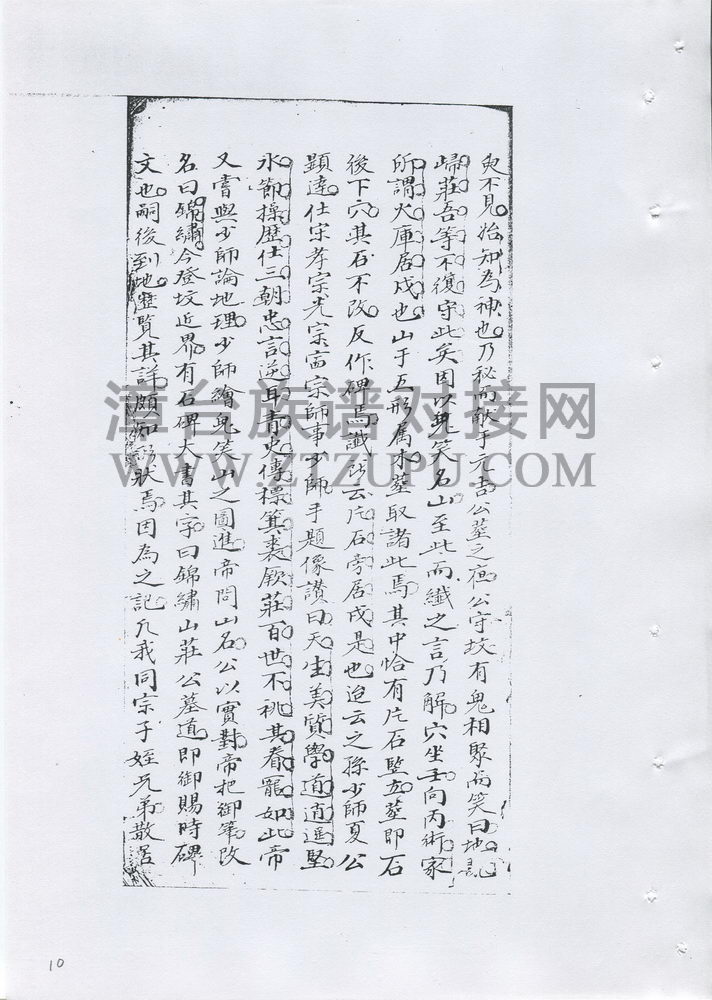 臾不見始知為神也乃秘而
元吉公墓之夜公守坟有鬼相聚而笑曰地
歸莊吾等不復守此矣因以鬼笑名山至此而讖之言乃解穴坐壬向丙術家
所謂火庫居戍也山于五形属水墓取諸此焉其中恰有片石監立墓即石
後下穴其石不改反作碑焉讖所云片石旁居戍是也迨云之孫少師夏公
顕達仕宋孝宗光宗寕宗師事少師手題像讃曰天生美質學道逍遥堅
氷節操歴仕三朝忠言逆耳青史傳標箕裘厥莊百世不祧其眷寵如此帝
又嘗與少師論地理少師繪鬼笑山之圖進帝問山名公以實對帝把御筆改
名曰錦繡今登坟近界有石碑大書其字曰錦繡山莊公墓道即御賜時碑
文也嗣後到地歴覧其詳頗如
狀焉因為之記凢我同宗子姪兄弟散居
漳台族谱对接网
WWW.ZTZUPU.COM
10